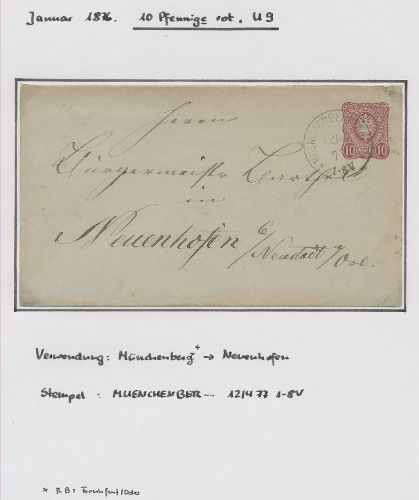 Januar 1876. 10 Pfennige rot. U9
10 10
MUENCHENBE
12/4
1-8V
Herrn
Bürgermeister Barthel
in
Neuenhofen b/
Neustadt a/Orl.
Verwendung: Münchenberg* → Neuenhofen
Stempel : MUENCHENBER.... 12/4 77 1-8V
* RB: Frankfurt/Oder